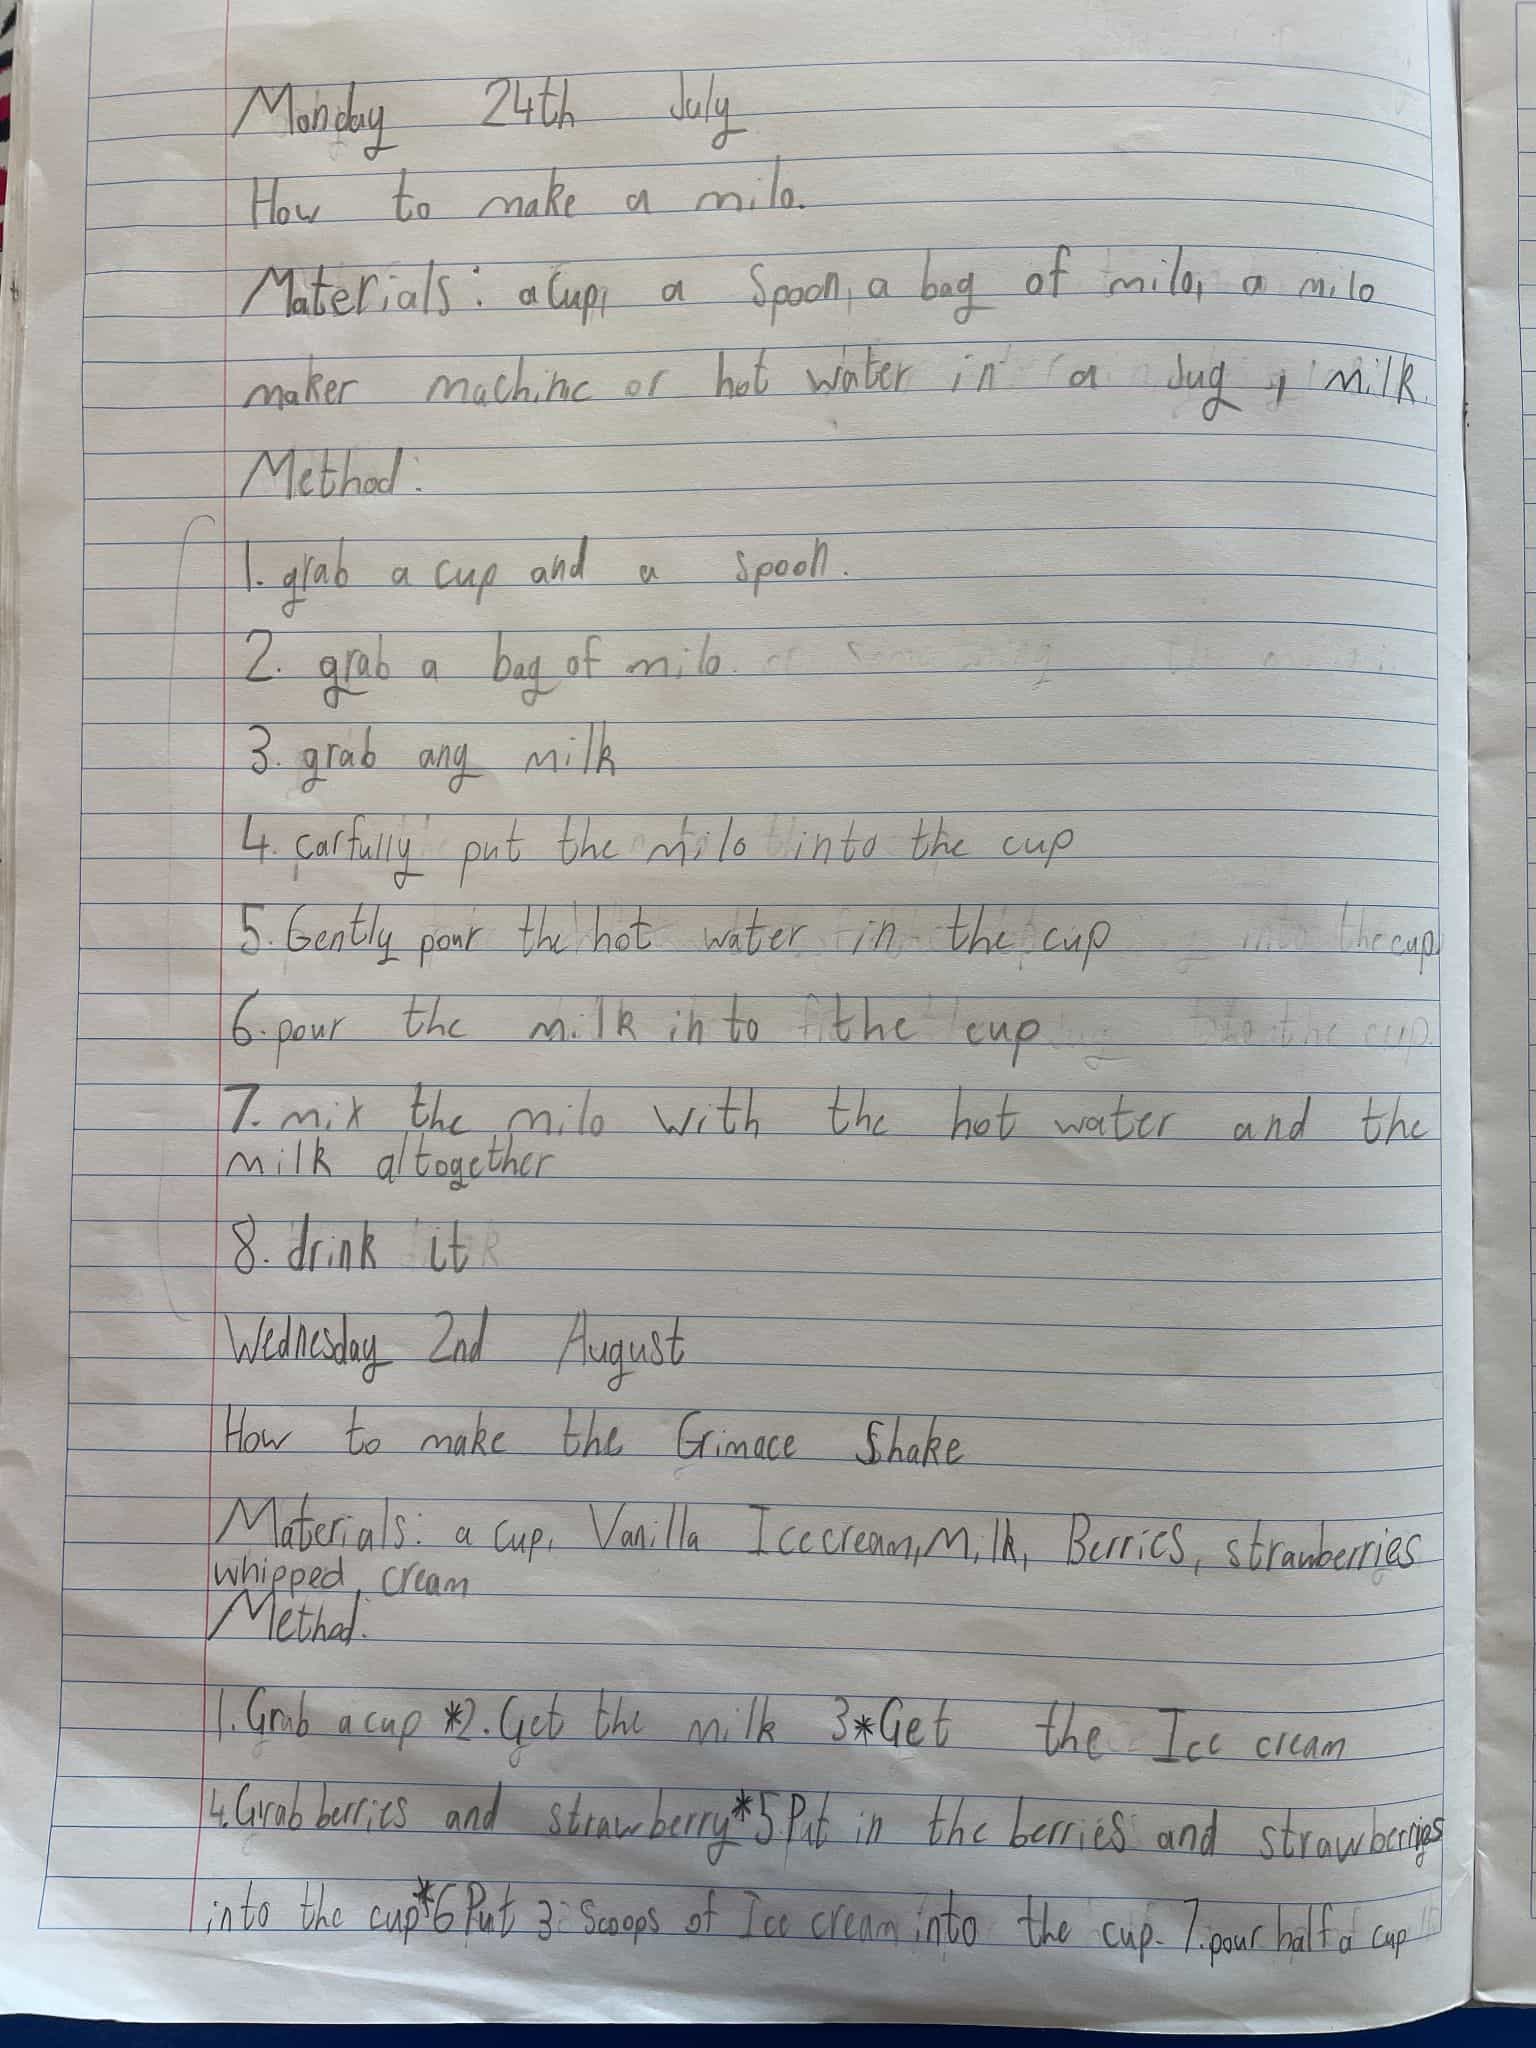 Monday 24th July
How to make a milo.
Materials: a Cup, a Spoon, a bag of milo, a milo
maker machine or hot water in a Jug, milk.
Method:
1. grab a cup and a spoon.
2. grab a bag of milo.
3. grab any milk
4. carfully put the milo into the cup
5. Gently pour the hot water in the cup
6. pour the milk in to the cup
7. mix the milo with the hot water and the
milk altogether
8. drink it
Wednesday 2nd August
How to make the Grimace Shake
Materials: a cup, Vanilla Ice cream, Milk, Berries, strawberries
whipped cream
Method:
1. Grab a cup *2. Get the milk 3*Get the Ice cream
4. Grab berries and strawberry *5. Put in the berries and strawberries
into the cup *6 Put 3 Scoops of Ice cream into the cup. 7. pour half a cup